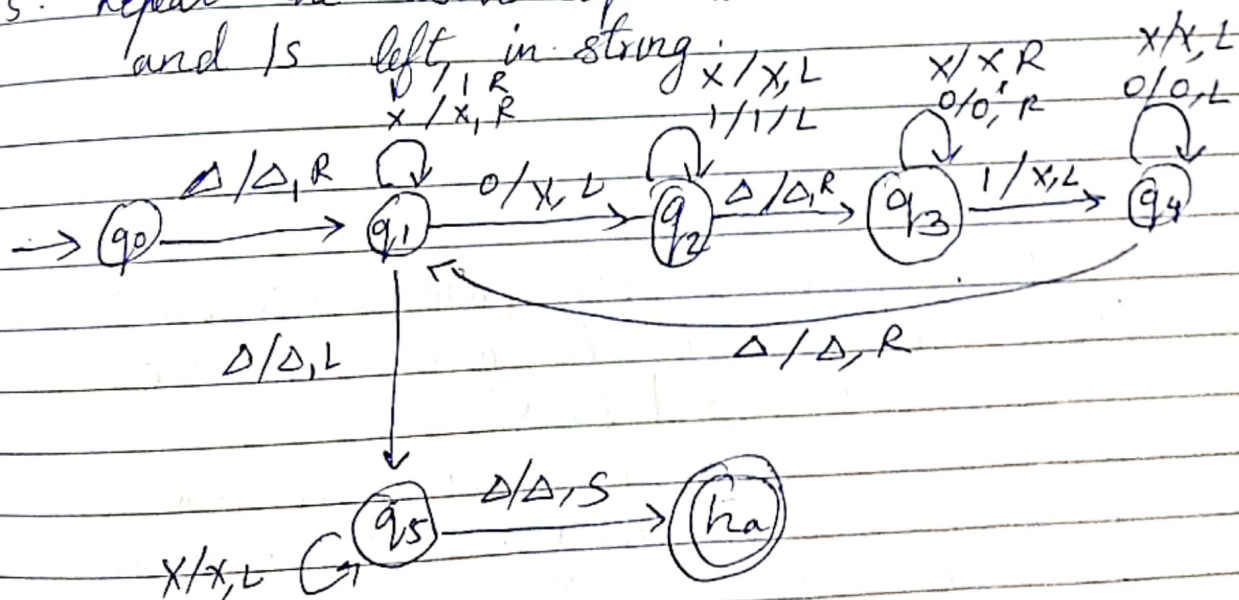 3. Repeat
and 1s left in string.
1/1, R
x/x, R
x/x, L
1/1/L
x/x R
0/0, R
x/x, L
0/0, L
Δ/Δ, R
0/x, L
Δ/Δ, R
1/x, L
q0
q1
q2
q3
q4
Δ/Δ, L
Δ/Δ, R
Δ/Δ, S
q5
ha
x/x, L